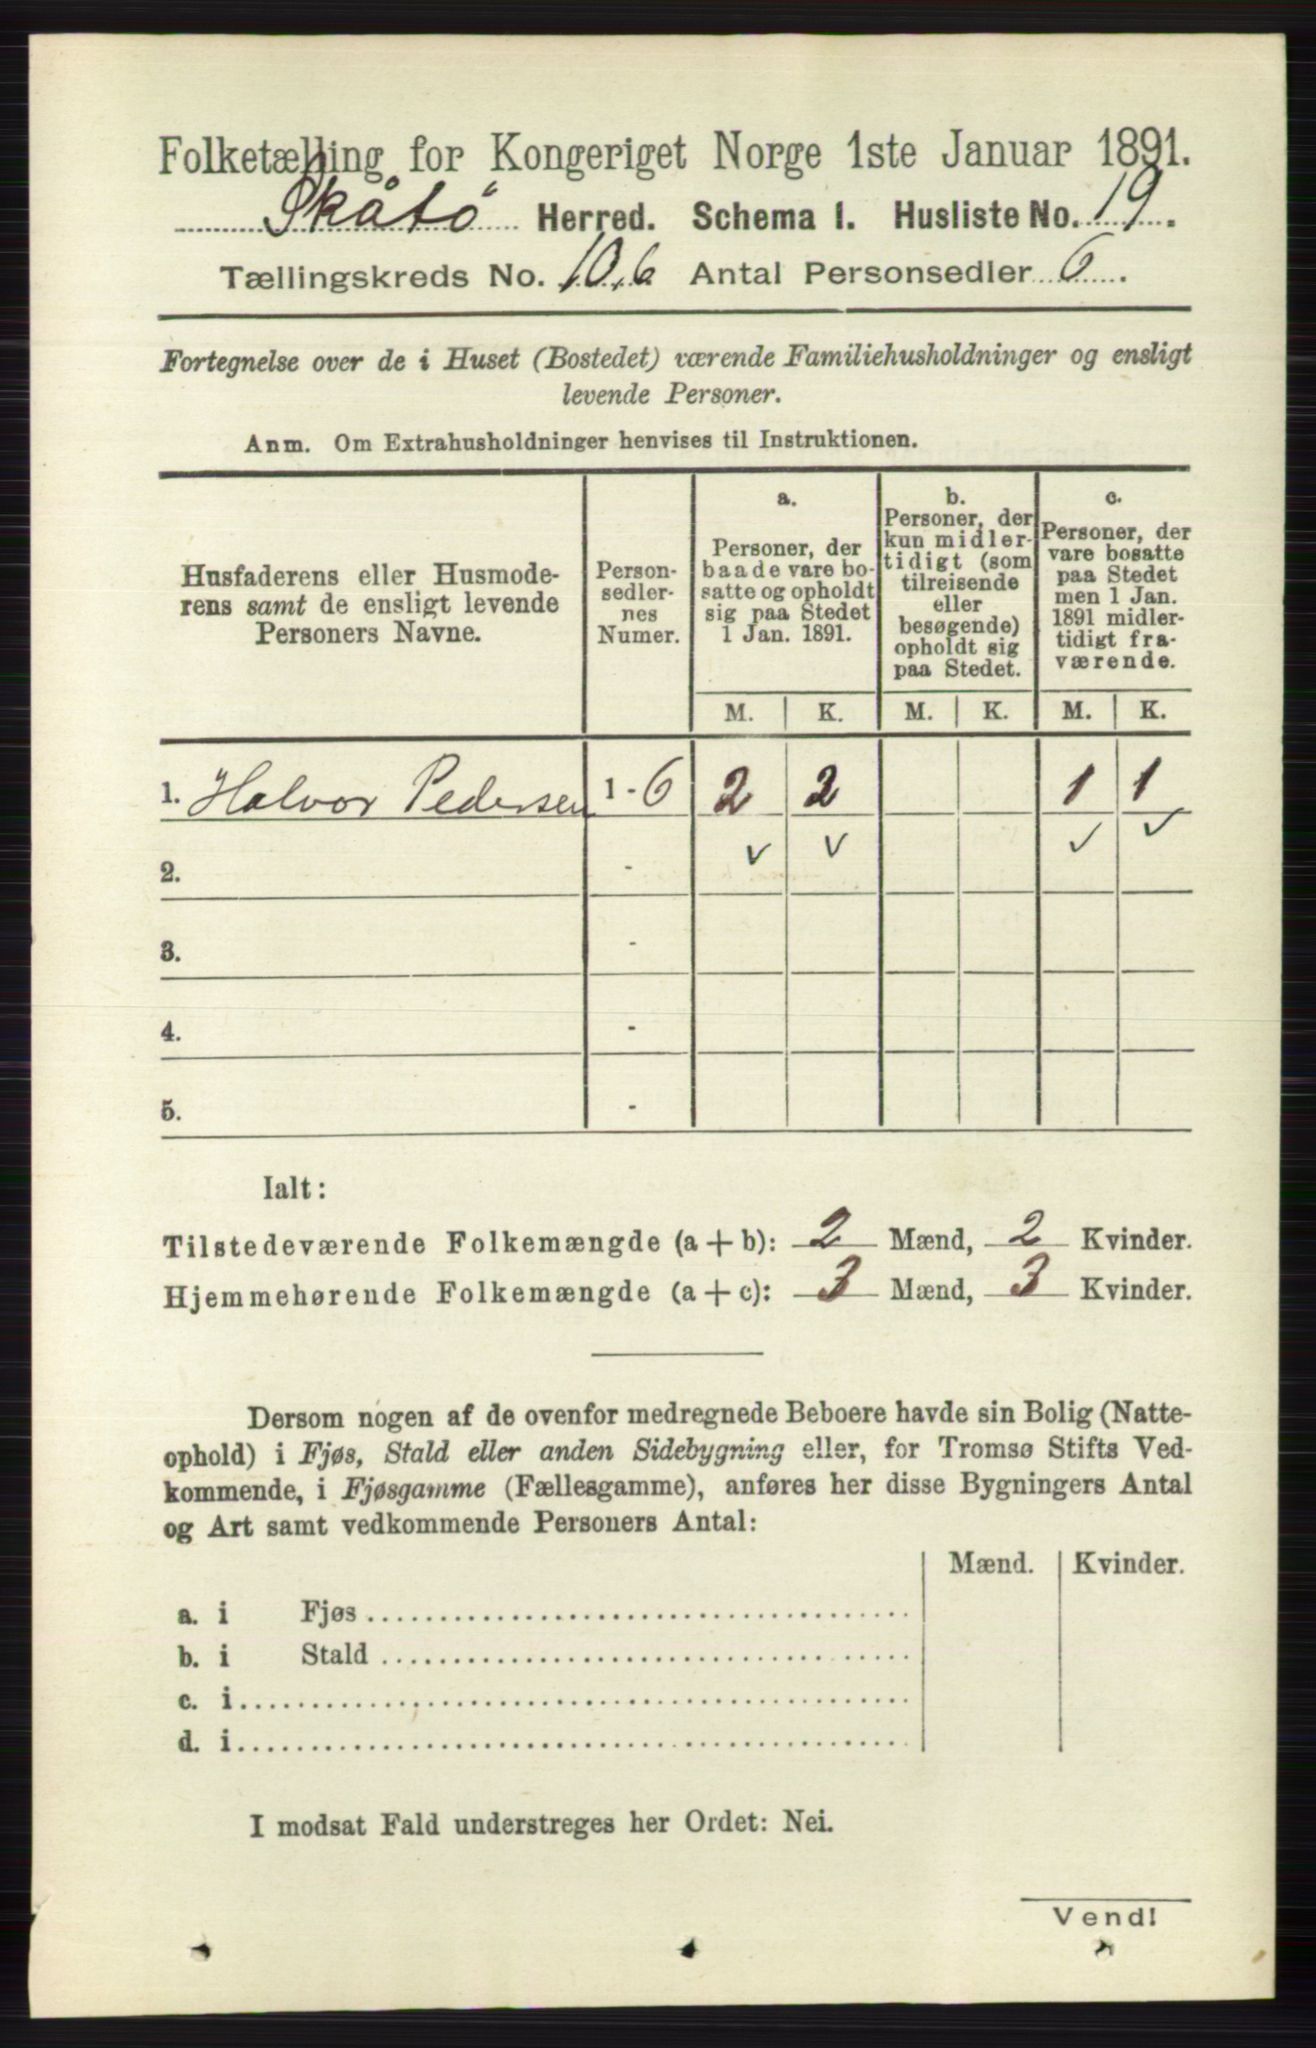 Folketælling for Kongeriget Norge 1ste Januar 1891.
Skåtö Herred. Schema 1. Husliste No. 19.
Tællingskreds No. 10,6 Antal Personsedler 6.
Fortegnelse over de i Huset (Bostedet) værende Familiehusholdninger og ensligt
levende Personer.
Anm. Om Extrahusholdninger henvises til Instruktionen.
Husfaderens eller Husmode-
rens samt de ensligt levende
Personers Navne.
Person-
sedler-
nes
Numer.
a.
Personer, der
baade vare bo-
satte og opholdt
sig paa Stedet
1 Jan. 1891.
b.
Personer, der
kun midler-
tidigt (som
tilreisende
eller
besøgende)
opholdt sig
paa Stedet.
c.
Personer, der
vare bosatte
paa Stedet
men 1 Jan.
1891 midler-
tidigt fra-
værende.
M. K. M. K. M. K.
1. Halvor Pedersen 1 - 6 2 2 1 1
2. - ✓ ✓ ✓ ✓
3. -
4. -
5. -
Ialt:
Tilstedeværende Folkemængde (a + b): 2 Mænd, 2 Kvinder.
Hjemmehørende Folkemængde (a + c): 3 Mænd, 3 Kvinder.
Dersom nogen af de ovenfor medregnede Beboere havde sin Bolig (Natte-
ophold) i Fjøs, Stald eller anden Sidebygning eller, for Tromsø Stifts Ved-
kommende, i Fjøsgamme (Fællesgamme), anføres her disse Bygningers Antal
og Art samt vedkommende Personers Antal:
Mænd. Kvinder.
a. i Fjøs
b. i Stald
c. i
d. i
I modsat Fald understreges her Ordet: Nei.
Vend!